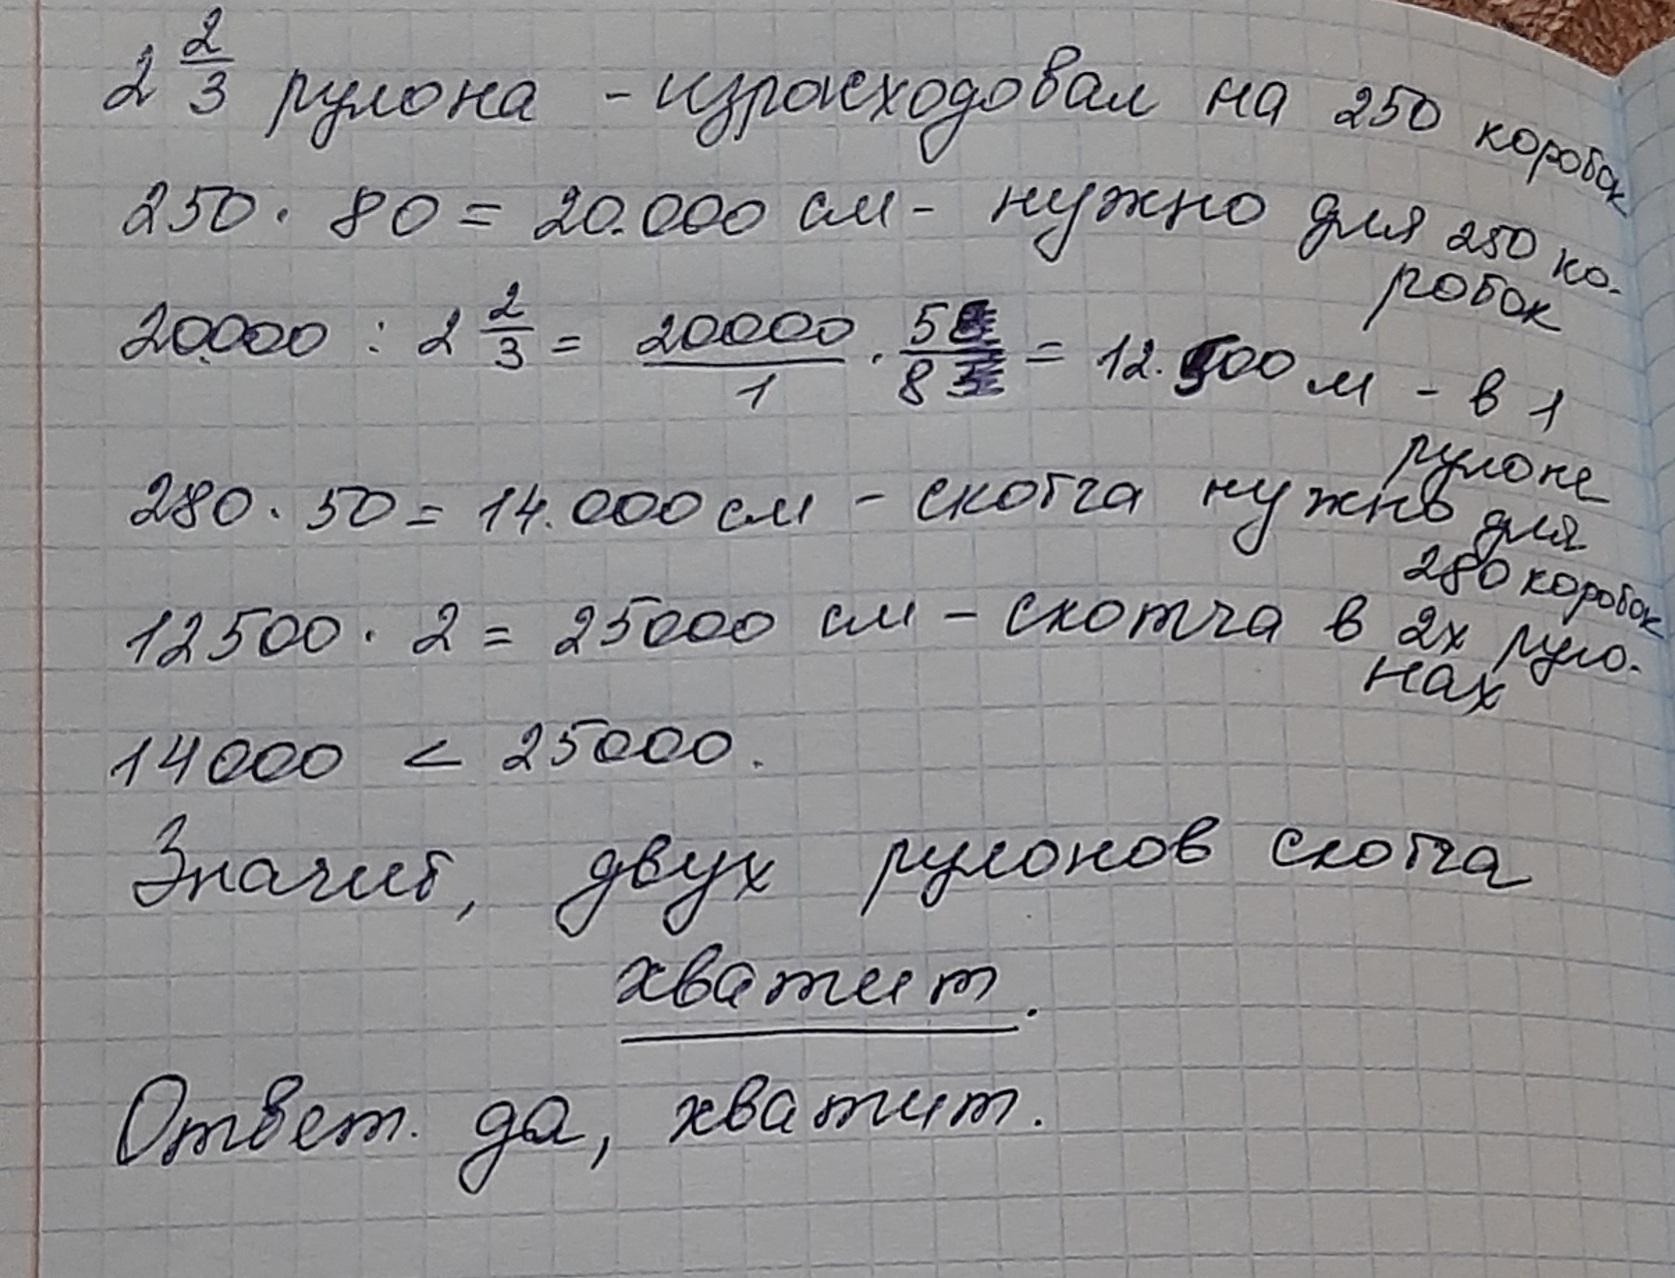 2 2/3 рулона - израсходовал на 250 коробок
250 · 80 = 20.000 см - нужно для 250 ко-
робок
20.000 : 2 2/3 = 20000/1 · 5/8 = 12.500 м - в 1
рулоне
280 · 50 = 14.000 см - скотча нужно для
280 коробок
12500 · 2 = 25000 см - скотча в 2х руло-
нах
14000 < 25000.
Значит, двух рулонов скотча
хватит.
Ответ. да, хватит.